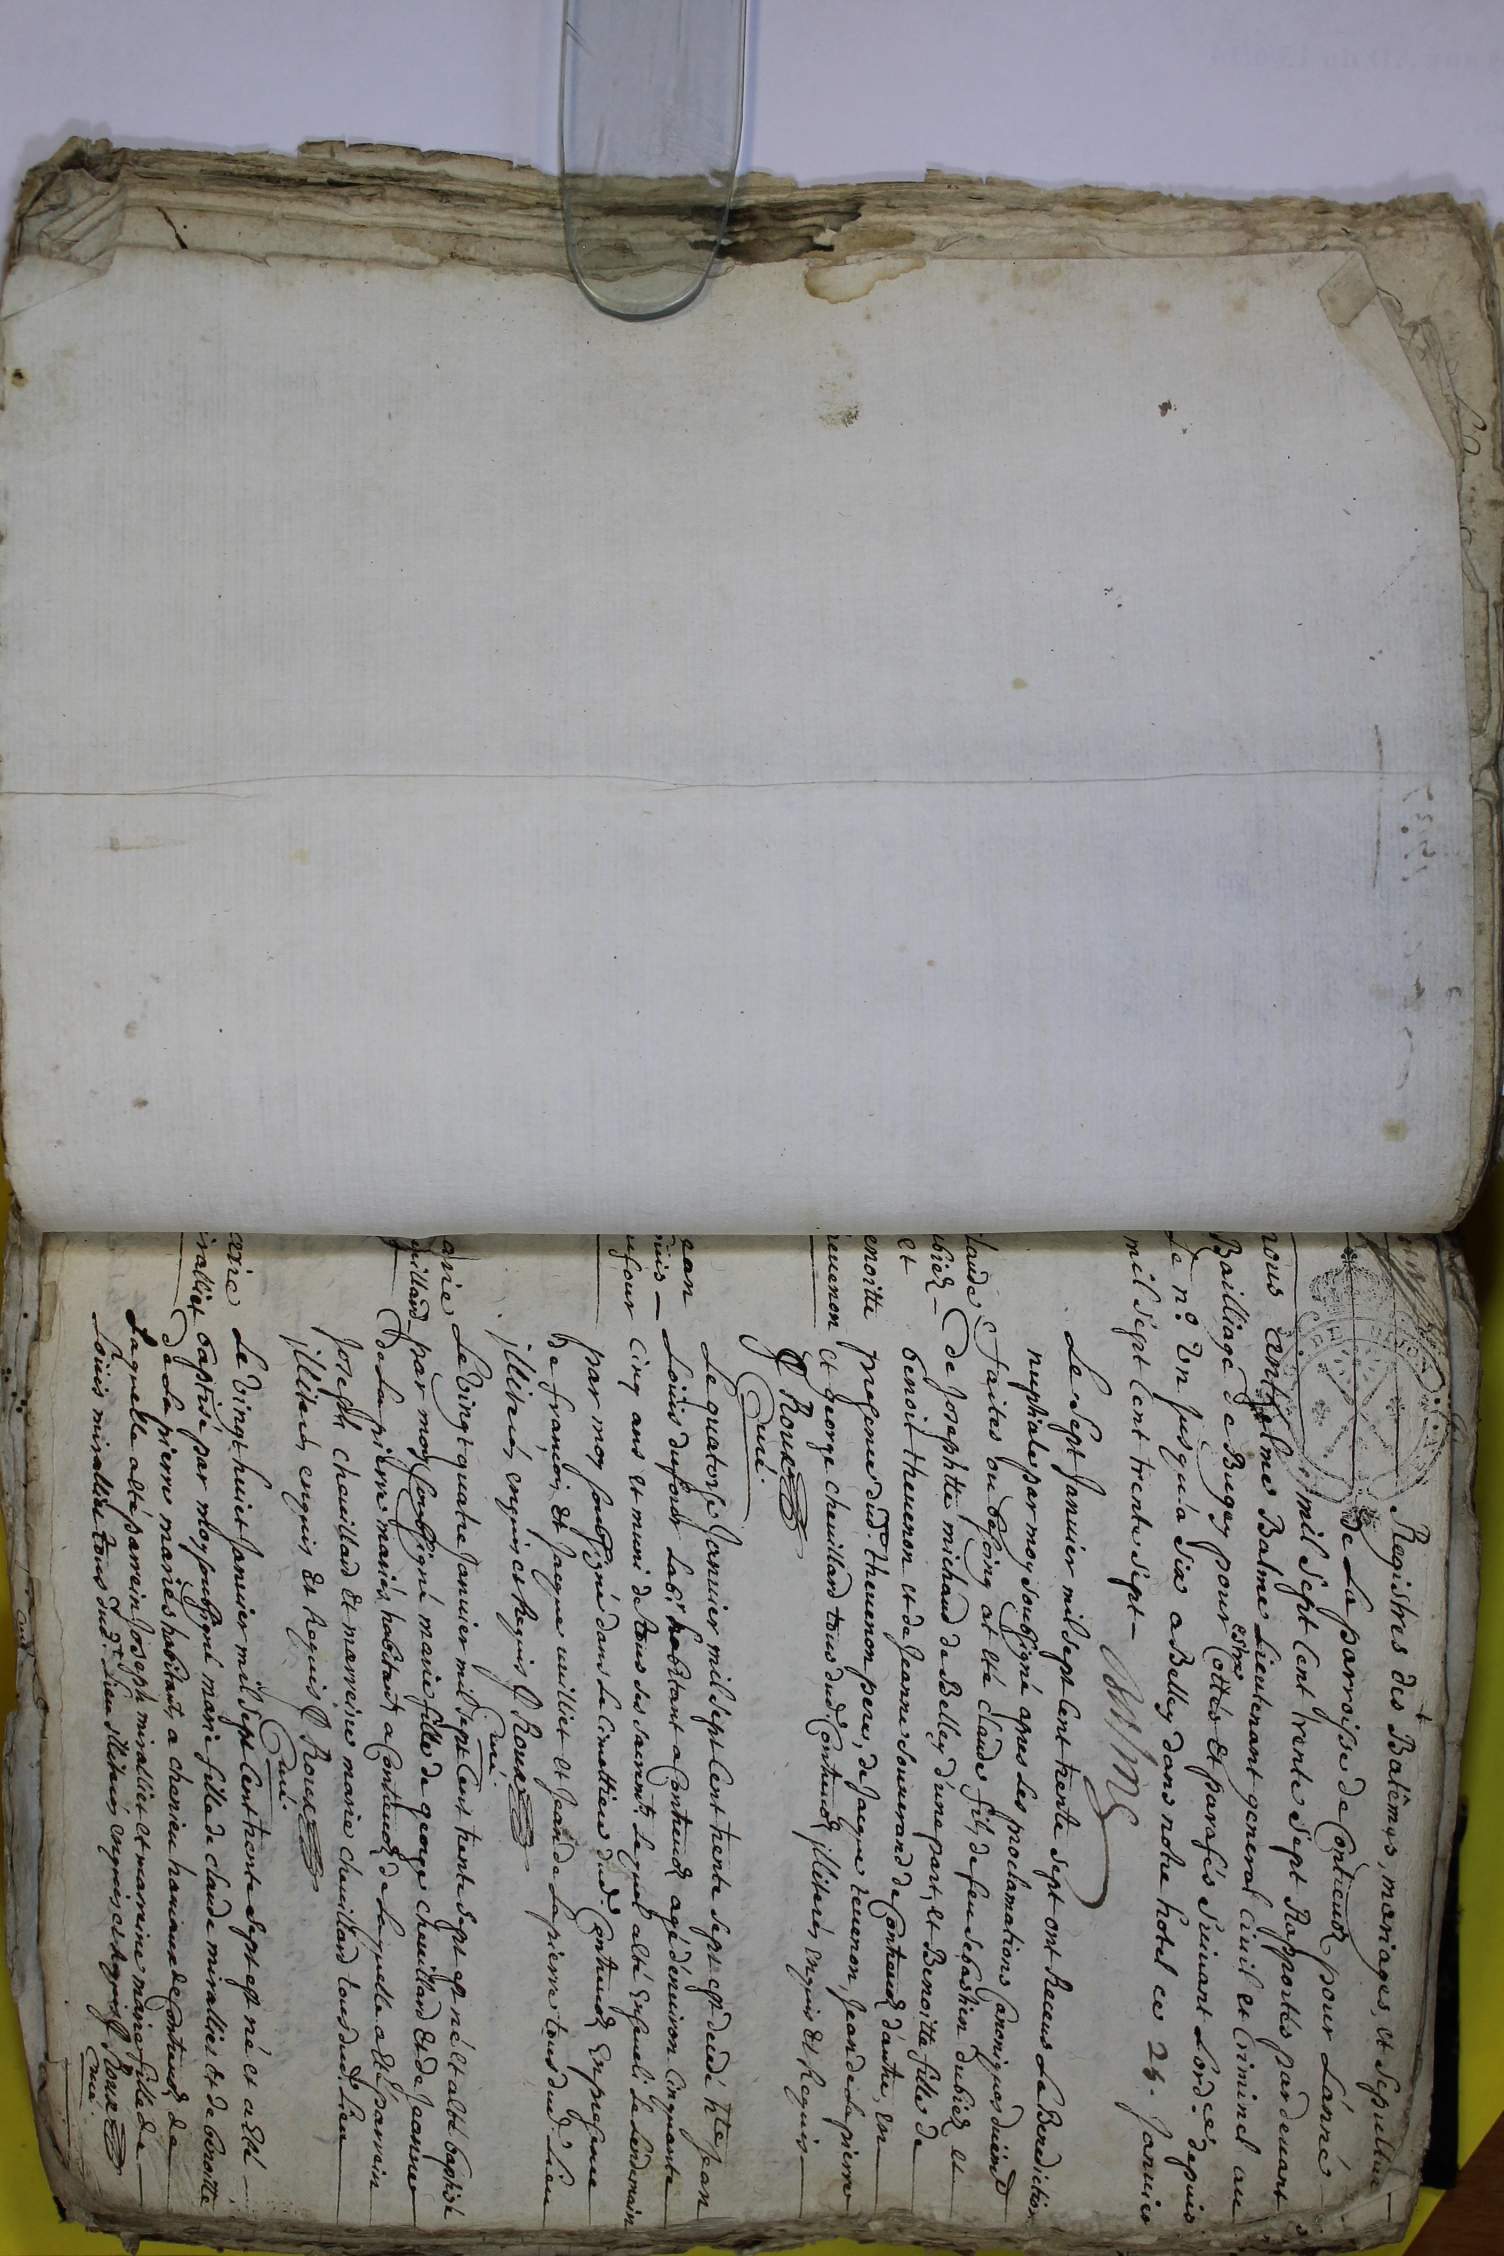 Registres des Batêmes, mariages, et Sepulture
De La parroisse de Contreuoz pour L'année
mil Sept Cent trente Sept Rapportés pardeuant
nous Anthelme Balme Lieutenant general Ciuil et Criminel au
Bailliage de Bugey pour estre Cottés et parafés Suiuant L'ord.ce depuis
Le n.o Un Jusqu'a Six a Belley dans notre hotel ce 24. Januier
mil Sept Cent trente Sept
Le Sept Januier mil Sept Cent trente Sept ont Receus La Benediction
nuptiale par moy Soubsigné apres Les proclamations Canoniques duëmt
laude Faites ou besoing at été Claude fils de feu Sebastien Dubiez et
ubiez De Josephtte michaud de Belley d'une part, et Benoitte fille de
et benoit theuenon et de Jeanne Souuerand de Contreuoz d'autre, en
enoitte presence dud.t theuenon pere, de Jacque teuenon, Jean de Lapierre
heuenon et George cheuillard tous dud.t Contreuoz jlliterés enquis et Requis
Roux
Curé.
Le quatorse Januier mil Sept Cent trente Sept est decedé h.te Jean
ean Loüis dufour Lab.r habitant a Contreuoz agé d'enuiron Cinquante
ouis Cinq ans et muni de tous ses sacrem.ts Lequel a été Enseueli Le Lendemain
ufour par moy Soubsigné dans Le Cimettiere dud.t Contreuoz En presence
de francois et Jacque uulliet et Jean de Lapierre tous dud.t Lieu
jlliterés enquis et Requis Roux
Curé.
arie Le Vingt quatre Januier mil Sept Cent trente Sept est né et a été baptisé
euillard par moy Soubsigné marie fille de george cheuillard et de Jeanne
de Lapierre mariés habitant a Contreuoz de Laquelle a été parrain
Joseph cheuillard et marreine marie cheuillard tous dud.t Lieu
jlliterés enquis et Requis Roux
Curé.
arie Le Vingt huict Januier mil Sept Cent trente Sept est né et a été
iralliet baptisé par moy Soubsigné marie fille de claude miralliet et de benoitte
de Lapierre mariés habitants a charieu hameaux de Contreuoz de
Laquelle a été parrain Joseph miralliet et marreine marie fille de
Loüis miralliet tous dud.t Lieu jlliterés enquis, et Requis Roux
Curé.